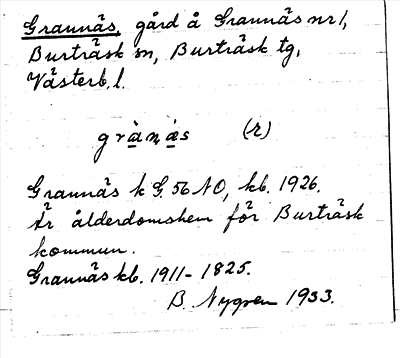 Grannäs, gård å Grannäs nr 1,
Burträsk sn, Burträsk tg,
Västerb. l.
grànäs (r)
Grannäs k G. 56 NO, kb. 1926.
Är ålderdomshem för Burträsk
kommun.
Grannäs kb. 1911-1825.
B. Nygren 1933.